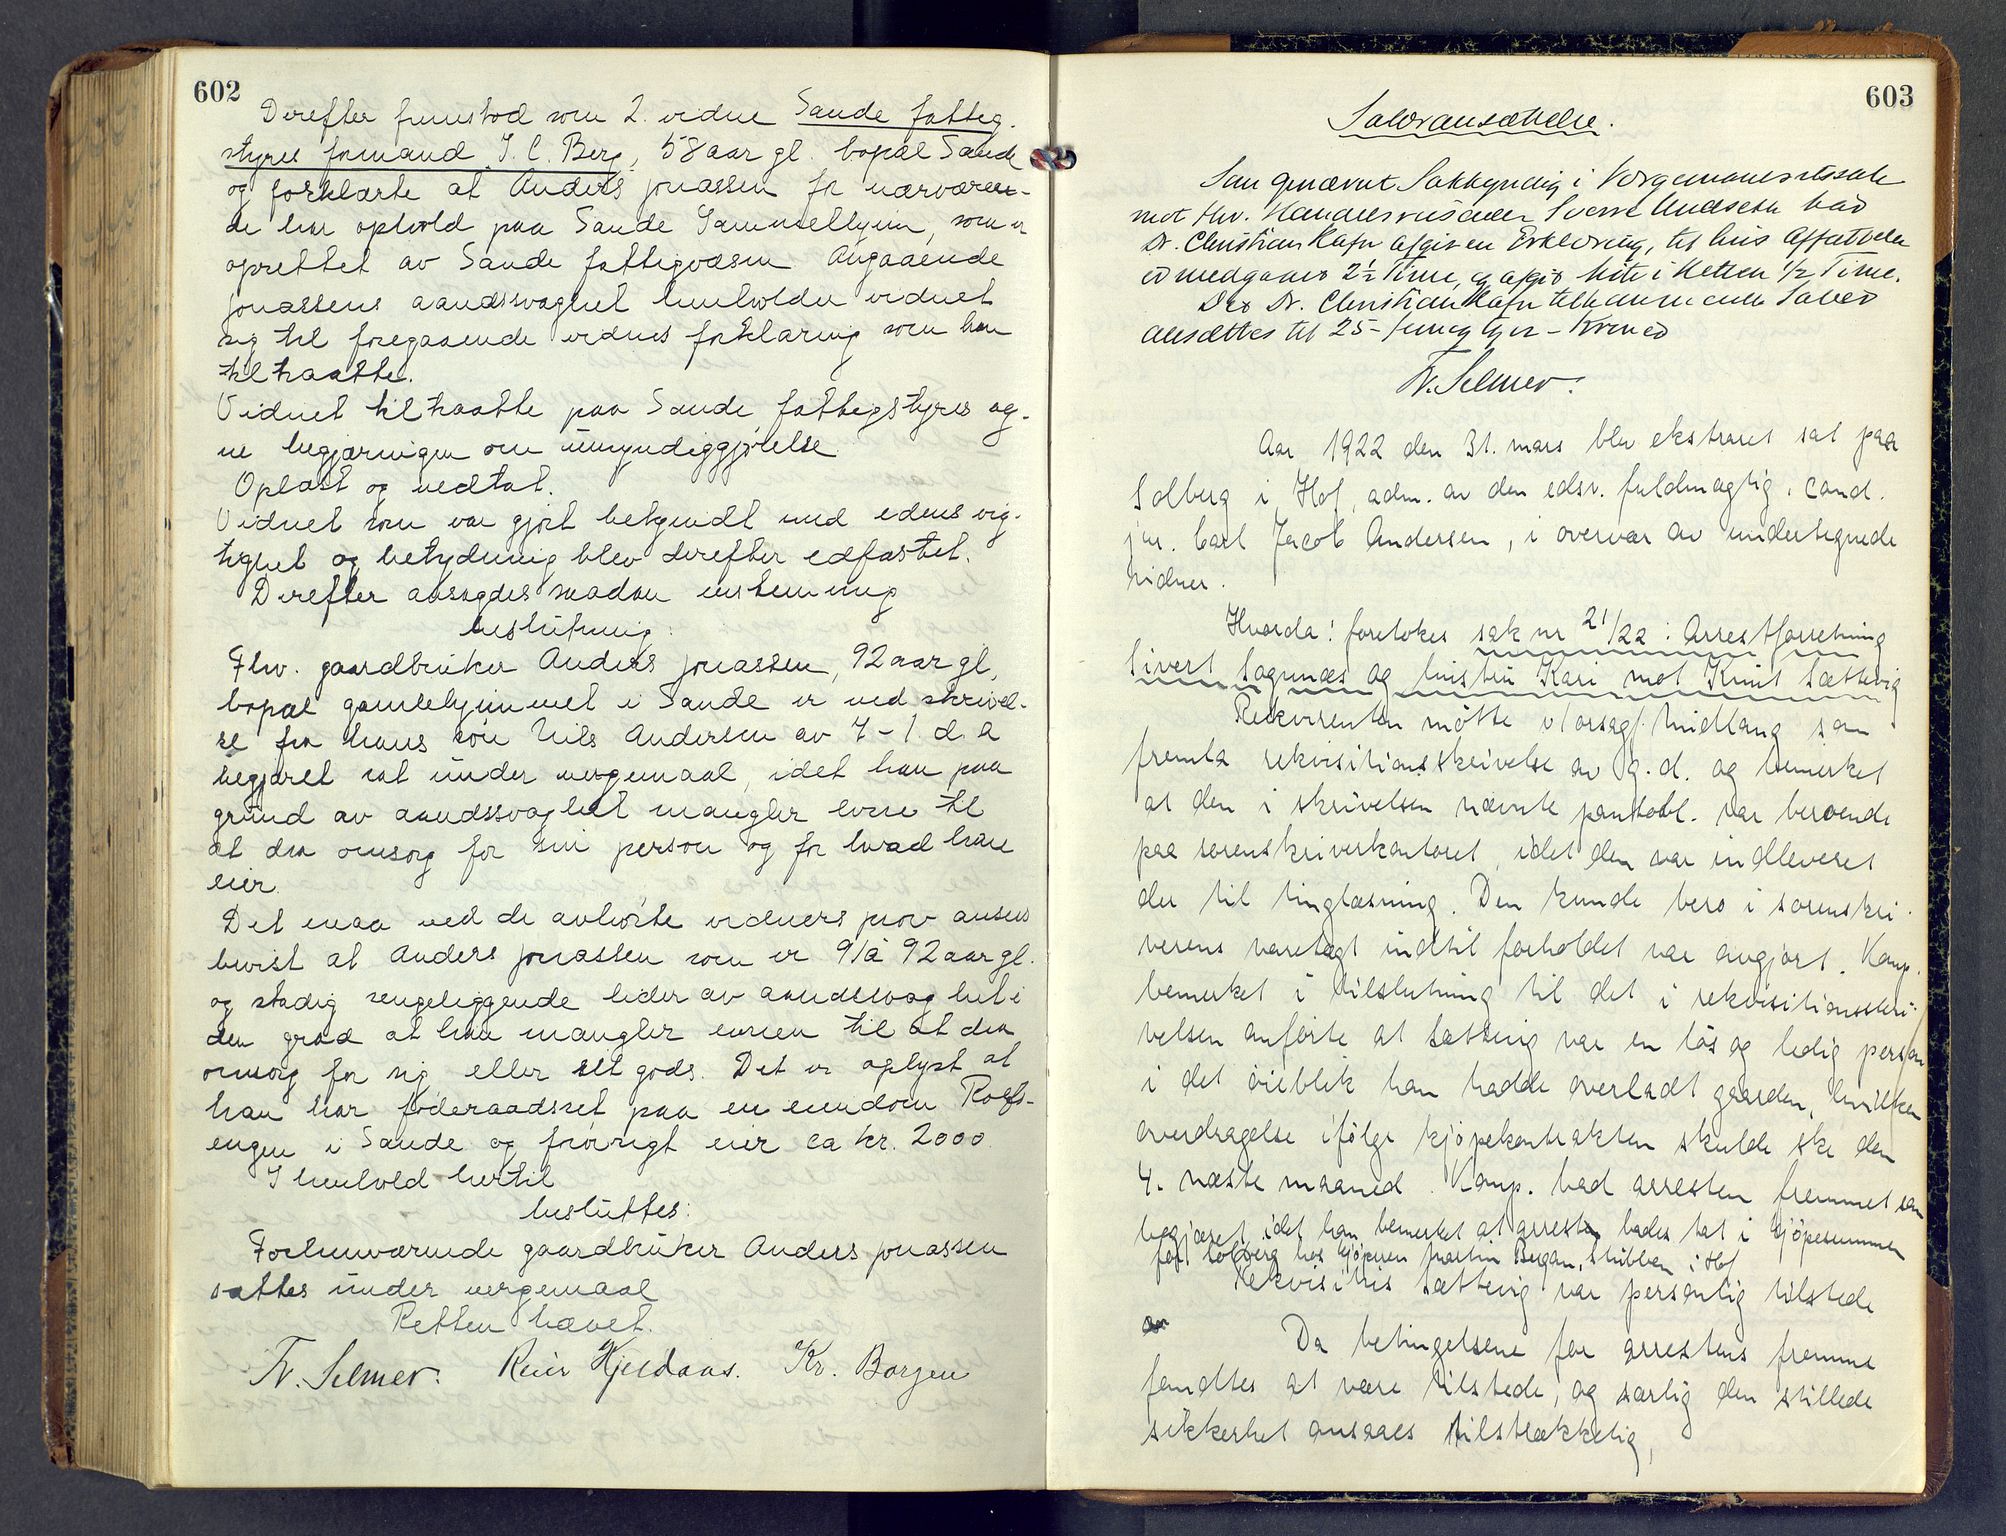 602
Derefter fremstod som 2. vidne Sande fatteg.
styres formand J. C. Berg, 58 aar gl. bopæl Sande
og forklarte at Anders Jonassen for nærværen-
de har ophold paa Sande Gammelhjem, som er
oprettet av Sande fattigvæsen Angaaende
Jonassens aandssvaghet henholder vidnet
sig til foregaaende vidnes forklaring som han
tiltraatte.
Vidnet tiltraatte paa Sande fattigstyres og-
ne begjæringen om umyndiggjørelse
Oplæst og vedtat.
Vidnet som var gjort bekjendt med edens vig-
tighet og betydning blev derefter edfæstet.
Derefter avsagdes saadan enstemmig
beslutning:
Fhv. gaardbruker Anders Jonassen, 92 aar gl,
bopæl gamlehjemmet i Sande er ved skrivel-
se fra hans søn Nils Andersen av 7-1. d. a
begjæret sat under vergemaal, idet han paa
grund av aandssvaghet mangler evne til
at dra omsorg for sin person og for hvad han
eier.
Det maa ved de avhørte vidners prov anses
bevist at Anders Jonassen som er 91 à 92 aar gl.
og stadig sengeliggende lider av aandssvaghet i
den grad at han mangler evnen til at dra
omsorg for sig eller sit gods. Det er oplyst at
han har føderaadsret paa en eiendom Rolfs-
engen i Sande og forøvrigt eier ca kr. 2000
I henhold hertil
besluttes:
Forhenværende gaardbruker Anders Jonassen
sættes under vergemaal
Retten hævet.
Fr. Selmer. Reier Hjeldaas. Kr. Borgen
603
Salæransættelse.
Som opnævnt Sakkyndig i Vergemaalssak
mot fhv. Handelsreisende Sverre Andsem har
Dr. Christian Rafn afgiven Erklæring, til hvis Affattelse
er medgaaet 2 1/2 Time, og afgit Møte i Retten 1/2 Time.
Det Dr. Christian Rafn tilkommende Salær
ansættes til 25 - femogtyve - Kroner
Fr. Selmer.
Aar 1922 den 31. mars blev ekstraret sat paa
Solberg i Hof, adm. av den edsv. fuldmægtig, cand.
jur. Carl Jacob Andersen, i overvær av undertegnede
vidner.
Hvorda: foretokes sak nr 21/22: Arrestforretning
Sivert Sagmæs og hustru Kari mot Knut Sættevig
Rekvirenten møtte v/orsagf. Midttang som
fremla rekvisitionsskrivelse av g. d. og bemerket
at den i skrivelsen nævnte pantobl. var beroende
paa sorenskriverkontoret, idet den var indleveret
der til tinglæsning. Den kunde bero i sorenskri-
verens varetægt indtil forholdet var avgjort. Komp.
bemerket i tilslutning til det i rekvisitionsskri-
velsen anførte at Sættevig var en løs og ledig person
i det øieblik han hadde overladt gaarden, hvilken
overdragelse ifølge kjøpekontrakten skulde ske den
4. næste maaned. Komp. bad arresten fremmet som
begjæret, idet han bemerket at arresten bades tat i kjøpesummen
for Solberg hos kjøperen Martin Bergan, Stubben i Hof
Rekvisitus Sættevig var personlig tilstede
Da betingelsene for arrestens fremme
fandtes at være tilstede, og særlig den stillede
sikkerhet ansaaes tilstrækkelig,